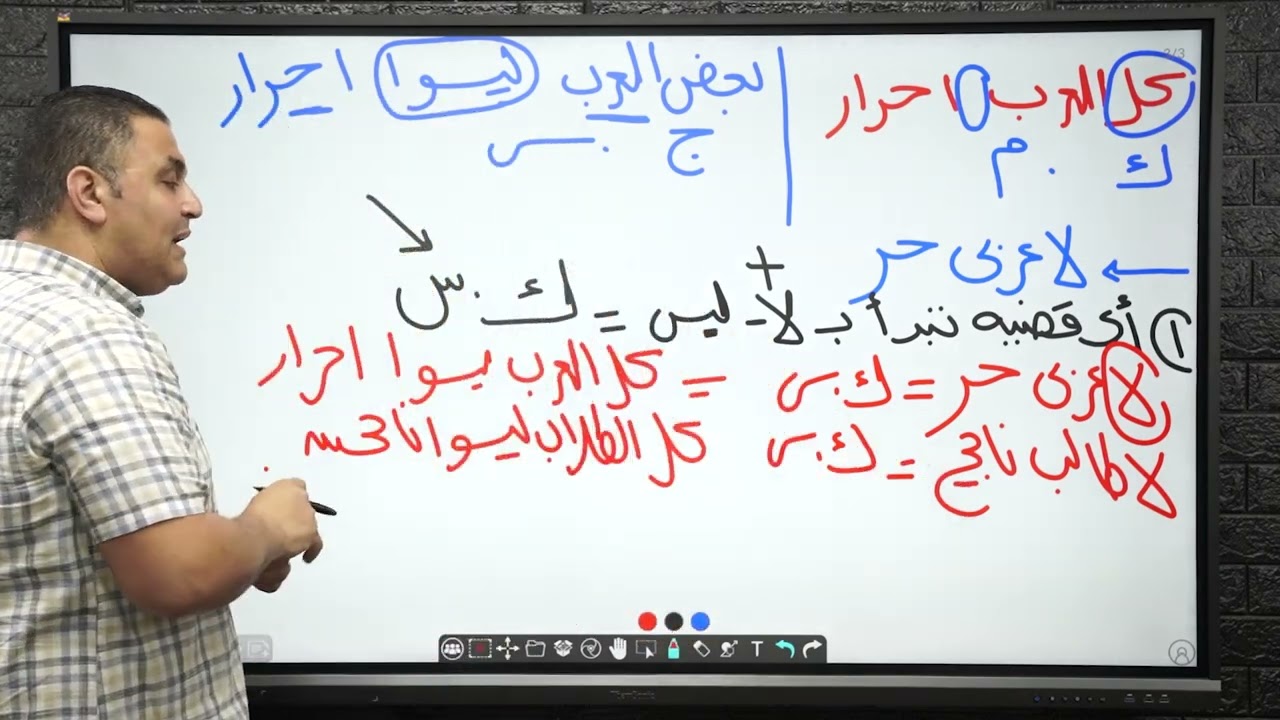 كل العرب احرار
بعض العرب ليسوا احرار
ك . م
ج . س
لا عربى حر
١ أى قضيه تبدأ ب لا - ليس = ك . س
لا عربى حر = ك . س = كل العرب ليسوا احرار
لا طالب ناجح = ك . س كل الطلاب ليسوا ناجحين
ViewSonic